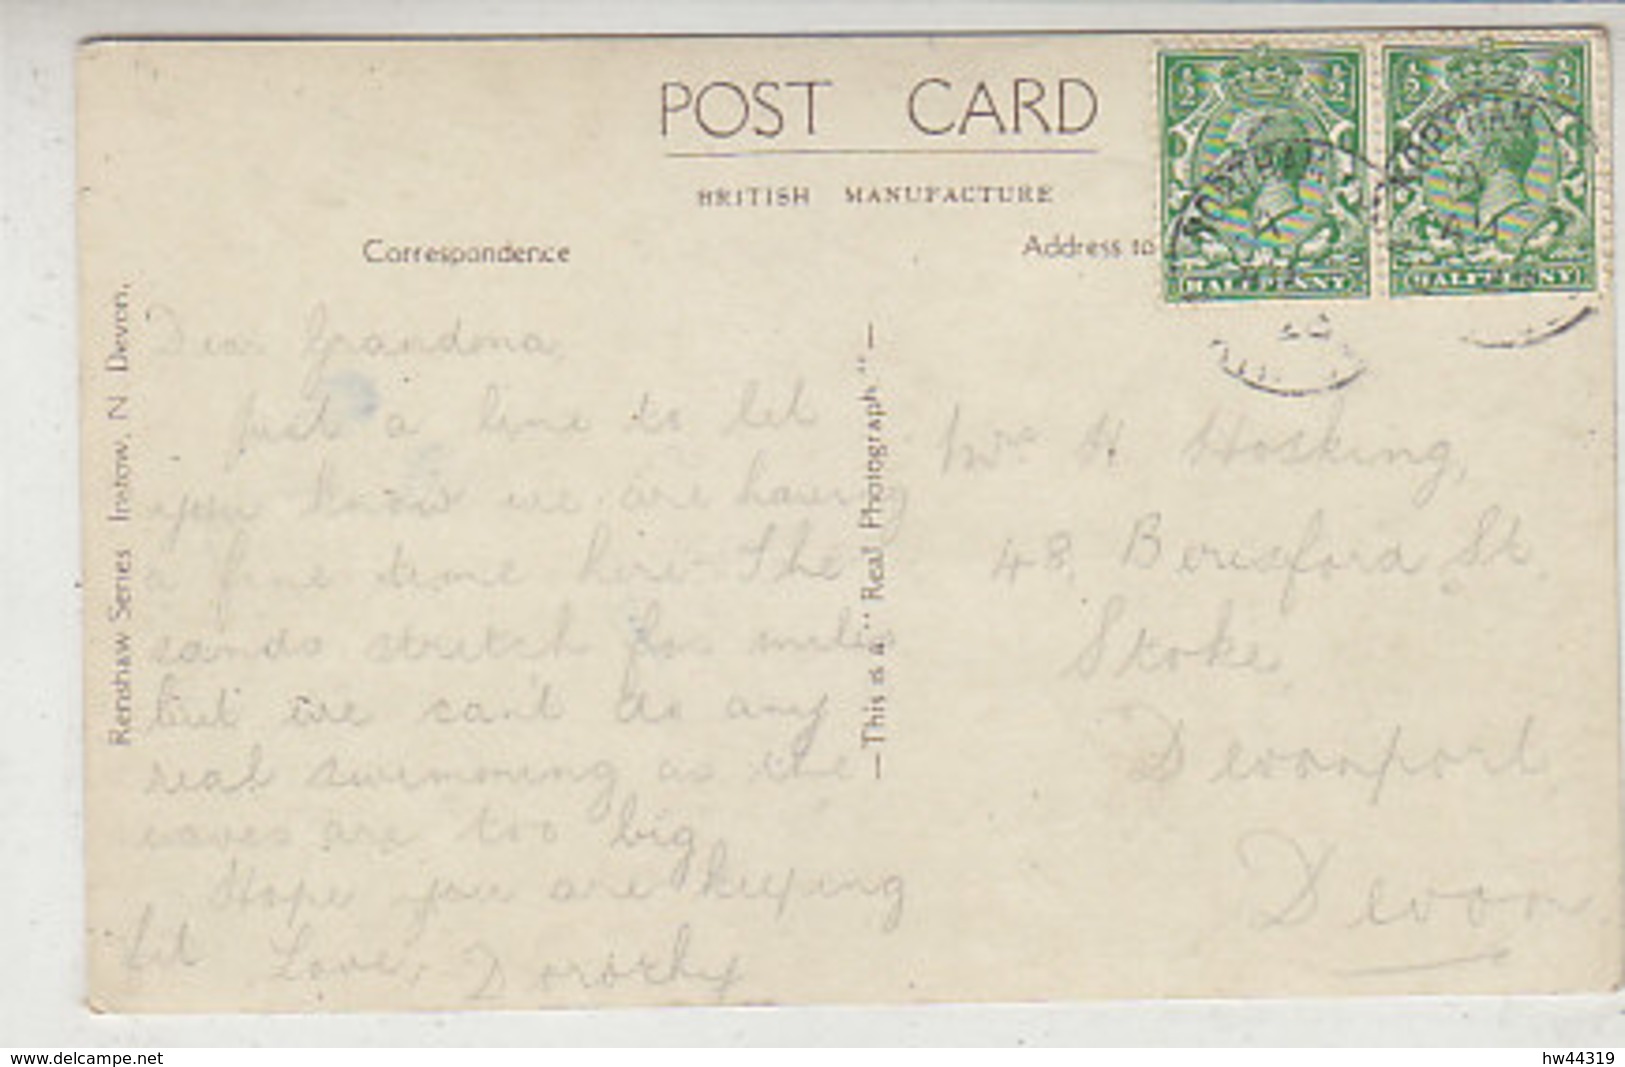 POST CARD
BRITISH MANUFACTURE
Correspondence
Address to
Renshaw Series Instow, N Devon.
Dear Grandma,
Just a line to let
you know we are having
a fine time here. The
sands stretch for miles
but we can't do any
real swimming as the
waves are too big
Hope you are keeping
fit Love, Dorothy
—This is a "Real Photograph"—
½ ½
HALFPENNY
½ ½
HALFPENNY
NORTHAM
NORTHAM
Mrs H. Hosking,
48, Beresford St.
Stoke,
Devonport
Devon.
www.delcampe.net
hw44319